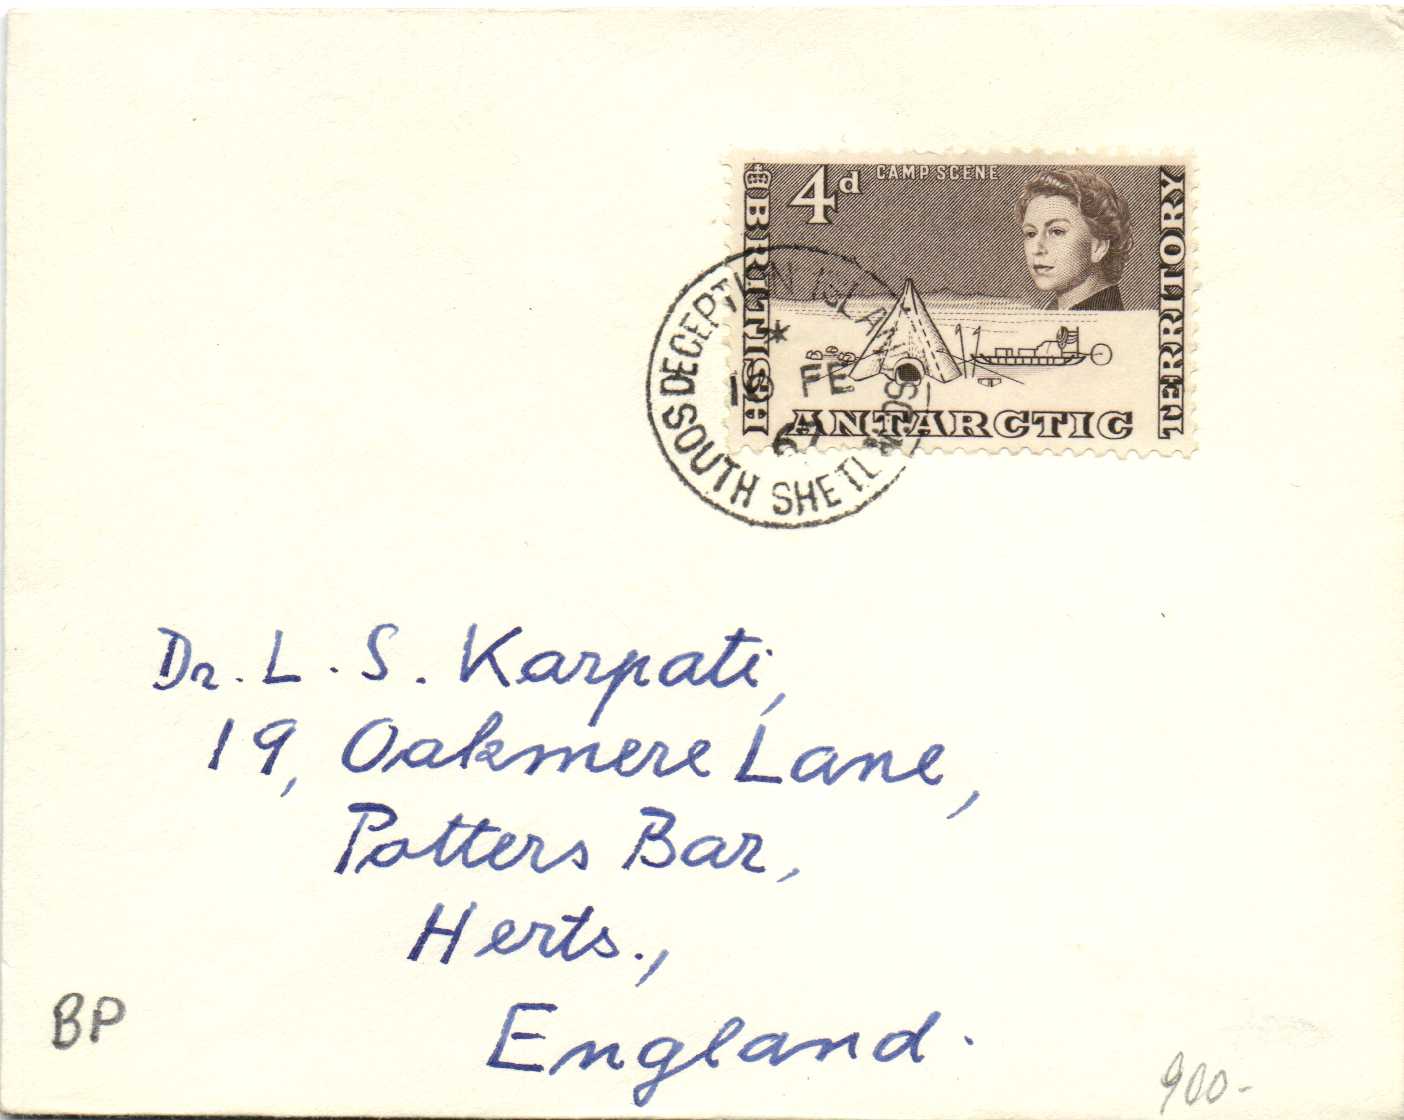 4d CAMP SCENE
BRITISH
ANTARCTIC
TERRITORY
DECEPTION ISLAND
FE
SOUTH SHETLANDS
Dr. L. S. Karpati,
19, Oakmere Lane,
Potters Bar,
Herts.,
England.
BP
900-